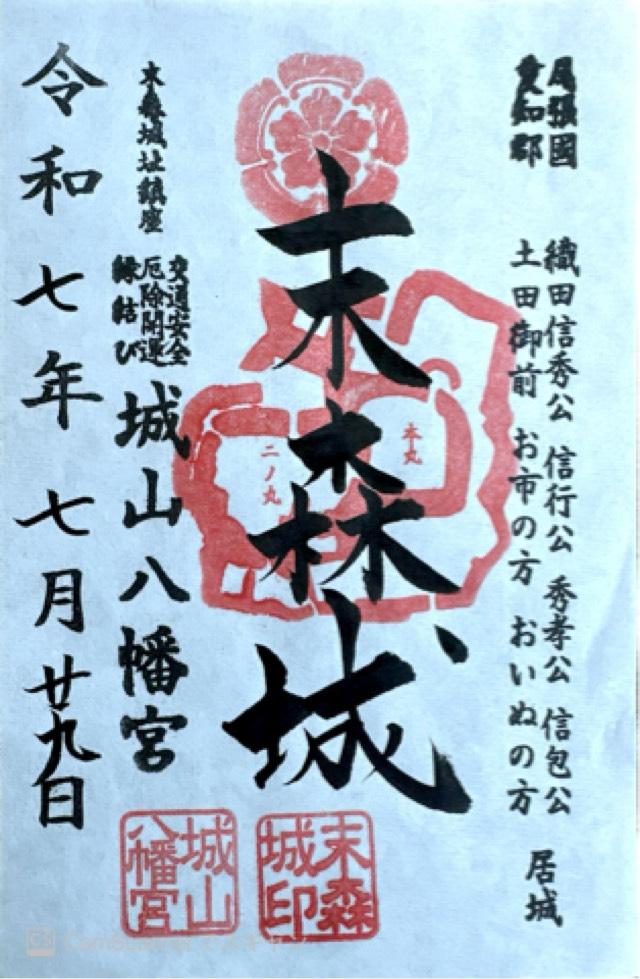 尾張國
愛知郡
織田信秀公 信行公 秀孝公 信包公
土田御前 お市の方 おいぬの方
居城
末森城
本丸
二ノ丸
末森城址鎮座
交通安全
厄除開運
縁結び
城山八幡宮
令和七年 七月廿九日
末森城印
城山八幡宮
CS CamScanner でスキャン